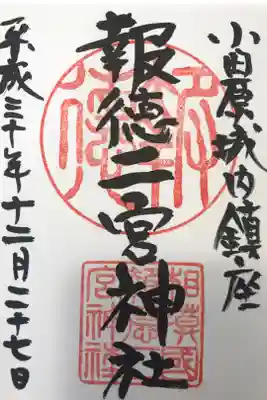 小田原城内鎮座
報徳二宮神社
平成三十年十二月二十七日
相模國
報徳二
宮神社